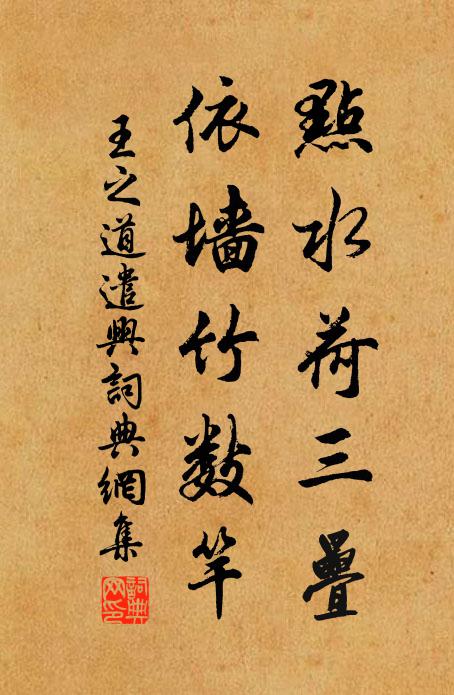 點水荷三疊
依墙竹數竿
王之道遣興詞典網集
詞典网印